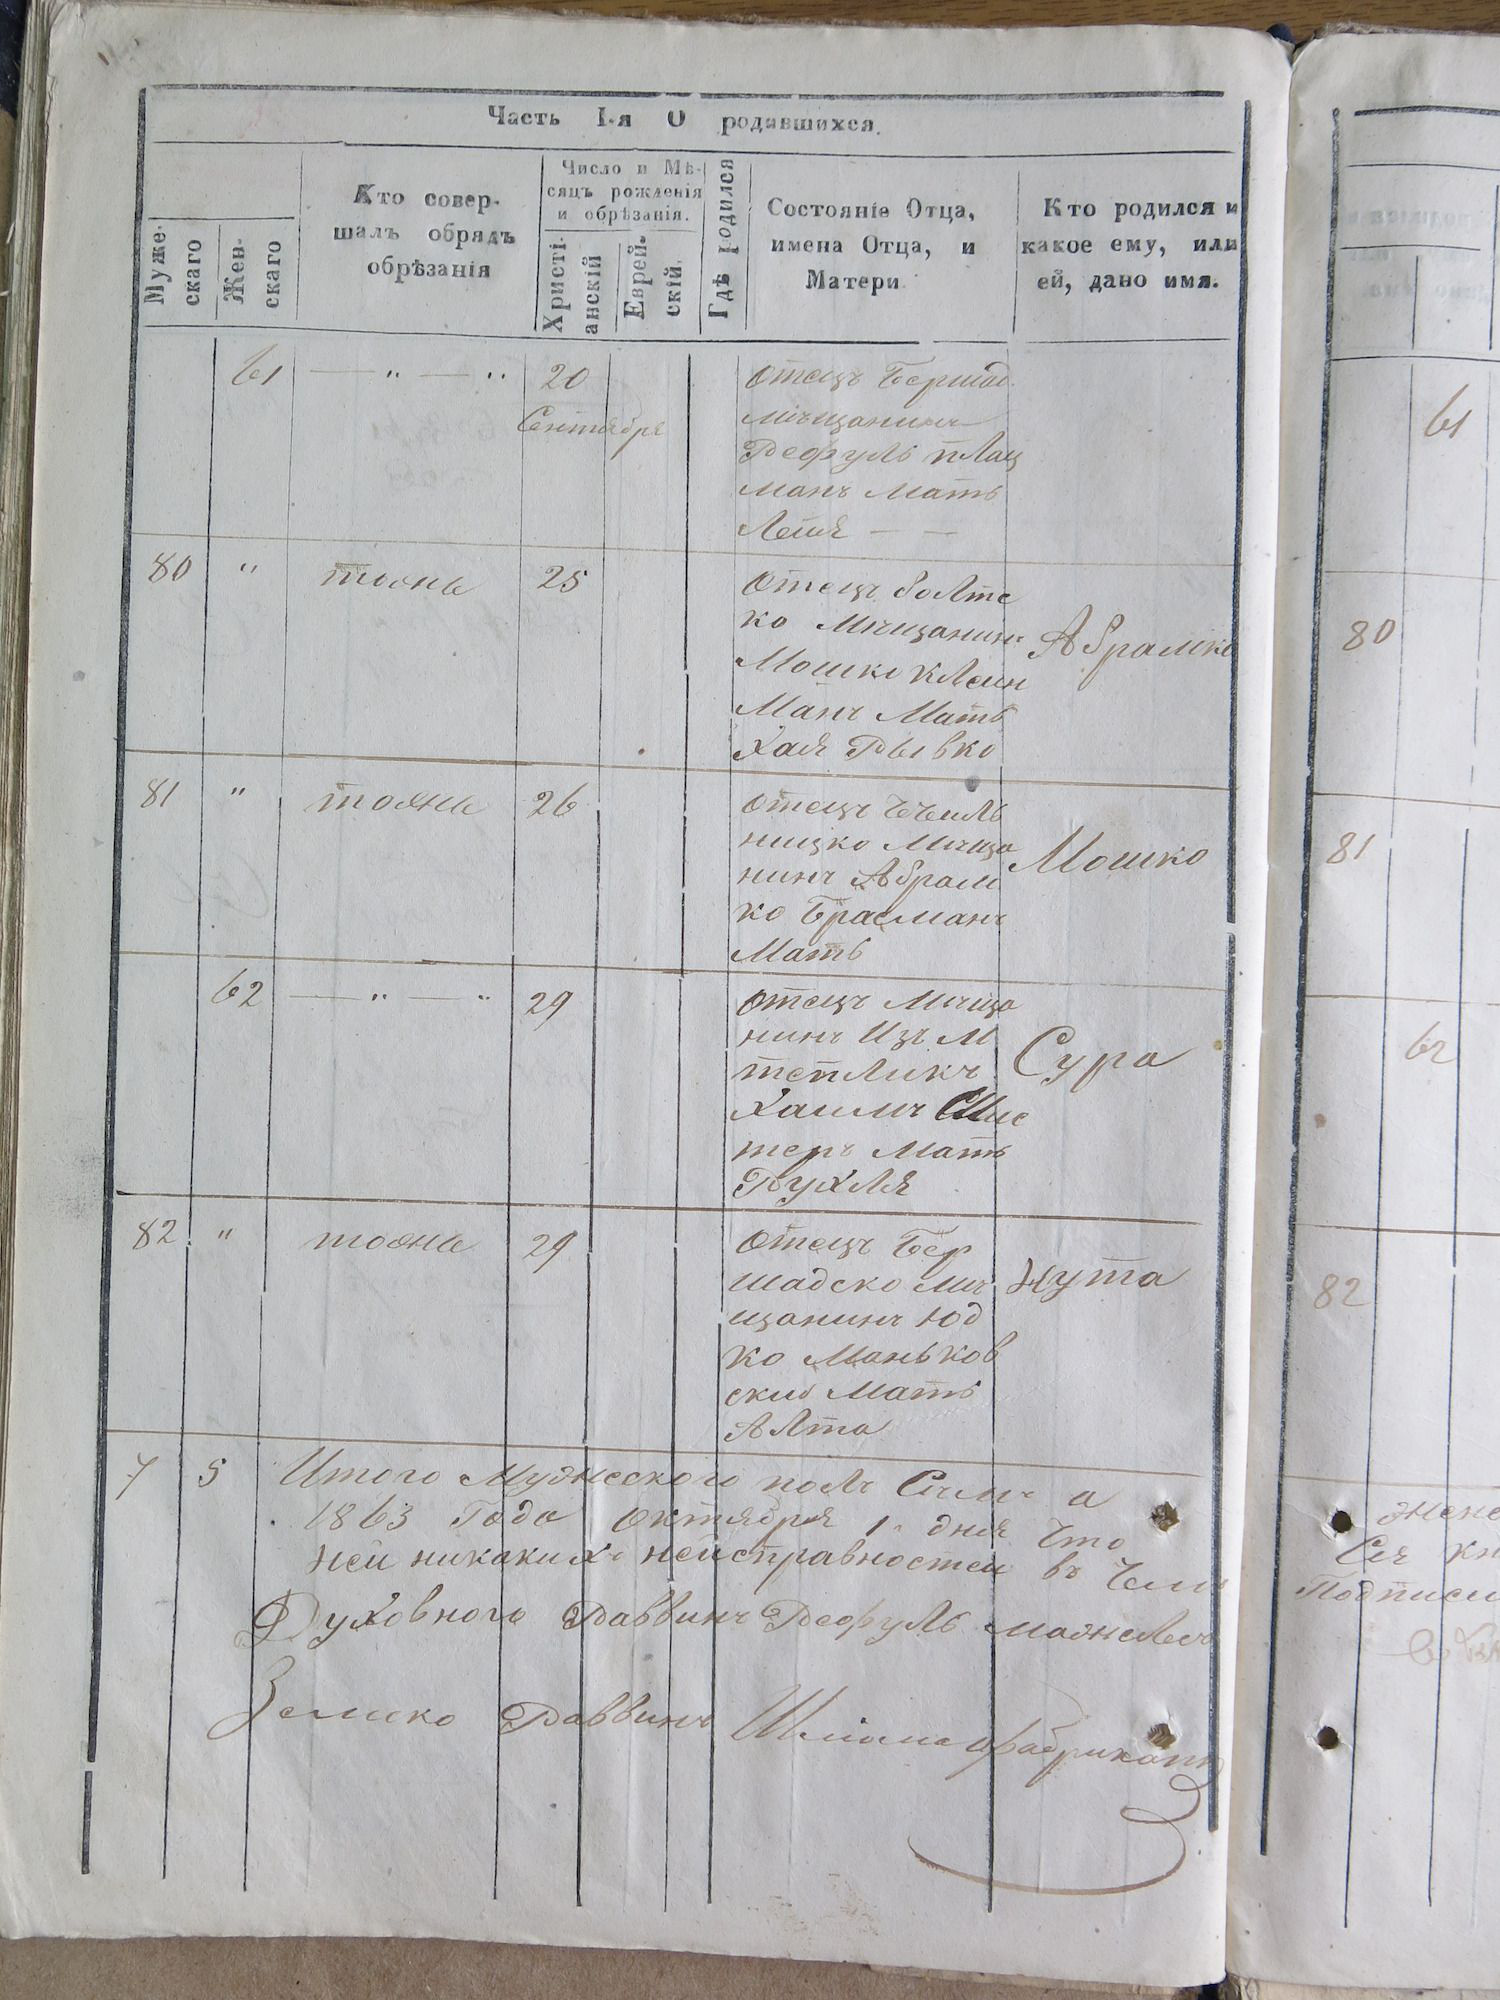 Часть I-я О родившихся.
Муже-
скаго
Жен-
скаго
Кто совер-
шалъ обрядъ
обрѣзанія
Число и Мѣ-
сяцъ рожденія
и обрѣзанія.
Христі-
анскій
Еврей-
скій.
Гдѣ родился
Состояніе Отца,
имена Отца, и
Матери
Кто родился и
какое ему, или
ей, дано имя.
61 — " — " 20
Сентября
Отецъ Бершад
мѣщанинъ
Рефуль Плац
манъ Мать
80 " тоянъ 25
Отецъ болте
ко Мѣщанинъ
Мошко Клеин
Манъ Мать
Хая Рывко
Абрамко
81 " тояне 26
Отецъ
ницко Мѣща
нинъ Абрам
ко Брасманъ
Мать
Мошко
62 — " — " 29
Отецъ Мѣща
нинъ Изъ М
тепликъ
Хаимъ
теръ Мать
Рухля
Сура
82 " тояне 29
Отецъ Бер
шадско мѣ
щанинъ Юд
ко Маньков
ски Мать
Алта
Нута
7 5 Итого Мужеского полъ Семъ а
1863 Года Октября 1. дня Что
ней никакихъ неисправностей въ Чем
Духовного Раввинъ Рефуль
Раввинъ Фабрикант
61
80
81
62
82
женс
Сія кн
Подписи